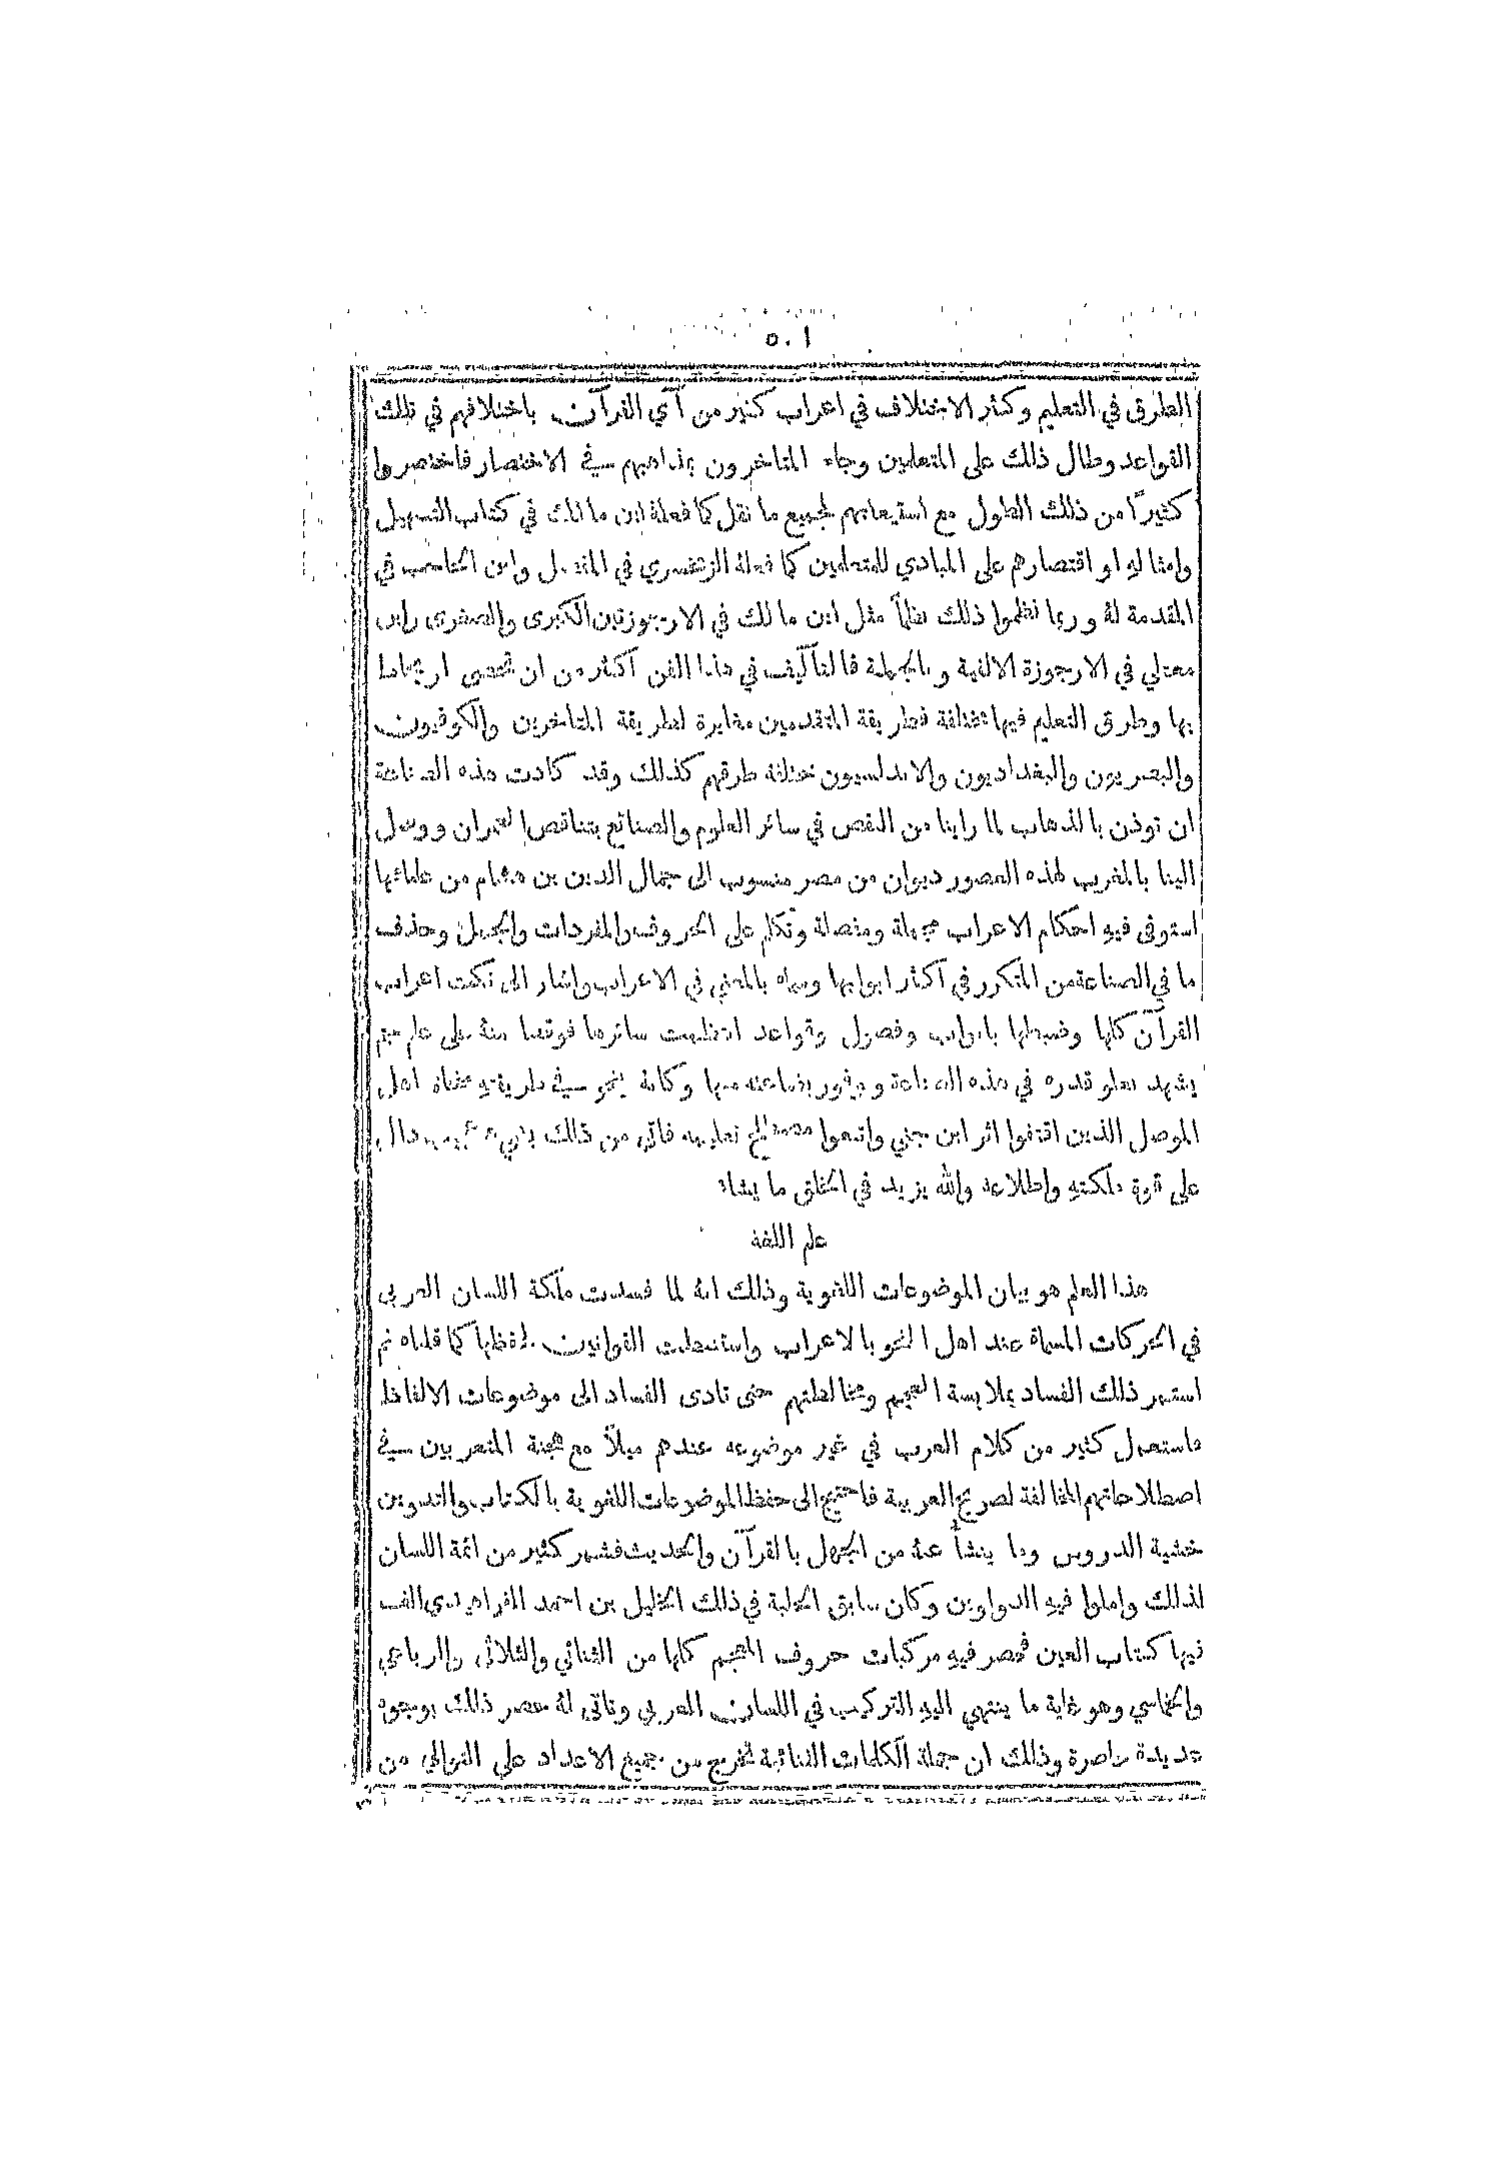 ٥٠١
الطرق في التعليم وكثر الاختلاف في اعراب كثير من آي القرآن باختلافهم في تلك
القواعد وطال ذلك على المتعلمين وجاء المتاخرون بمذاهبهم في الاختصار فاختصروا
كثيرًا من ذلك الطول مع استيعابهم لجميع ما نقل كما فعلهُ ابن مالك في كتاب التسهيل
وامثالهِ او اقتصارهم على المبادي للمتعلمين كما فعلهُ الزمخشري في المفصل وابن الحاجب في
المقدمة لهُ وربما نظموا ذلك نظمًا مثل ابن مالك في الارجوزتين الكبرى والصغرى وابن
معطي في الارجوزة الالفية وبالجملة فالتآليف في هذا الفن اكثر من ان تحصى او يحاط
بها وطرق التعليم فيها مختلفة فطريقة المتقدمين مغايرة لطريقة المتاخرين والكوفيون
والبصريون والبغداديون والاندلسيون مختلفة طرقهم كذلك وقد كادت هذه الصناعة
ان توذن بالذهاب لما راينا من النقص في سائر العلوم والصنائع بتناقص العمران ووصل
الينا بالمغرب لهذه العصور ديوان من مصر منسوب الى جمال الدين بن هشام من علمائها
استوفى فيهِ احكام الاعراب مجملة ومفصلة وتكلم على الحروف والمفردات والجمل وحذف
ما في الصناعة من المتكرر في اكثر ابوابها وسماه بالمغني في الاعراب واشار الى نكت اعراب
القرآن كلها وضبطها بابواب وفصول وقواعد انتظمت سائرها فوقفنا منهُ على علم جم
يشهد بعلو قدره في هذه الصناعة ووفور بضاعته منها وكانهُ ينحو في طريقتهِ منحاة اهل
الموصل الذين اقتفوا اثر ابن جني واتبعوا مصطلح تعليمه فاتى من ذلك بشيء عجيب دال
على قوة ملكتهِ واطلاعه والله يزيد في الخلق ما يشاء
علم اللغة
هذا العلم هو بيان الموضوعات اللغوية وذلك انهُ لما فسدت ملكة اللسان العربي
في الحركات المسماة عند اهل النحو بالاعراب واستنبطت القوانين لحفظها كما قلناه ثم
استمر ذلك الفساد بملابسة العجم ومخالطتهم حتى تادى الفساد الى موضوعات الالفاظ
فاستعمل كثير من كلام العرب في غير موضوعه عندهم ميلاً مع هجنة المتعربين في
اصطلاحاتهم المخالفة لصريح العربية فاحتيج الى حفظ الموضوعات اللغوية بالكتاب والتدوين
خشية الدروس وما ينشأ عنهُ من الجهل بالقرآن والحديث فشمر كثير من ائمة اللسان
لذلك واملوا فيهِ الدواوين وكان سابق الحلبة في ذلك الخليل بن احمد الفراهيدي الف
فيها كتاب العين فحصر فيهِ مركبات حروف المعجم كلها من الثنائي والثلاثي والرباعي
والخماسي وهو غاية ما ينتهي اليهِ التركيب في اللسان العربي وتاتى لهُ حصر ذلك بوجوه
عديدة حاصرة وذلك ان جملة الكلمات الثنائية تخرج من جميع الاعداد على التوالي من